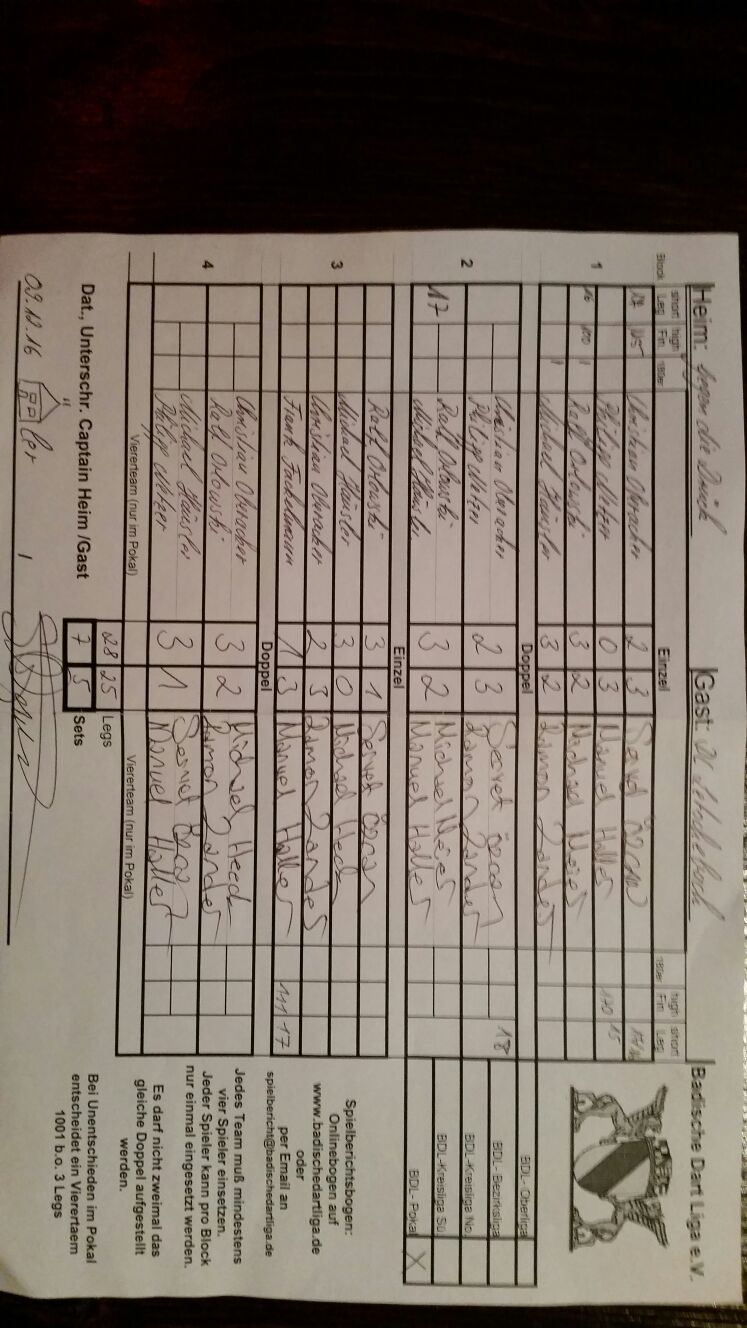 Heim: Gast: Badische Dart Liga e.V.
Block short Leg high Fin 180er Einzel 180er high Fin short Leg
Christian Oberacher 2 3
Philipp Melzer 0 3 Manuel Haller 170 15
1 Ralf Orlowski 3 2 Michael Meier
Michael Häusler 3 2 Ramon Zander
Doppel
Christian Oberacher
Philipp Melzer 2 3 Servet Özcan
Ramon Zander 18
2 17 Ralf Orlowski
Michael Häusler 3 2 Michael Meier
Manuel Haller
Einzel
Ralf Orlowski 3 1 Servet Özcan
3 Michael Häusler 3 0 Michael Heck
Christian Oberacher 2 3 Ramon Zander
Frank Fackelmann 1 3 Manuel Haller 111 17
Doppel
Christian Oberacher
Ralf Orlowski 3 2 Michael Heck
Ramon Zander
4 Michael Häusler
Philipp Melzer 3 1 Servet Özcan
Manuel Haller
Viererteam (nur im Pokal) Viererteam (nur im Pokal)
28 25 Legs
7 5 Sets
Dat., Unterschr. Captain Heim /Gast
BDL- Oberliga
BDL- Bezirksliga
BDL-Kreisliga No.
BDL-Kreisliga Sü.
BDL- Pokal X
Spielberichtsbogen:
Onlinebogen auf
www.badischedartliga.de
oder
per Email an
spielbericht@badischedartliga.de
Jedes Team muß mindestens
vier Spieler einsetzen.
Jeder Spieler kann pro Block
nur einmal eingesetzt werden.
Es darf nicht zweimal das
gleiche Doppel aufgestellt
werden.
Bei Unentschieden im Pokal
entscheidet ein Vierertaem
1001 b.o. 3 Legs